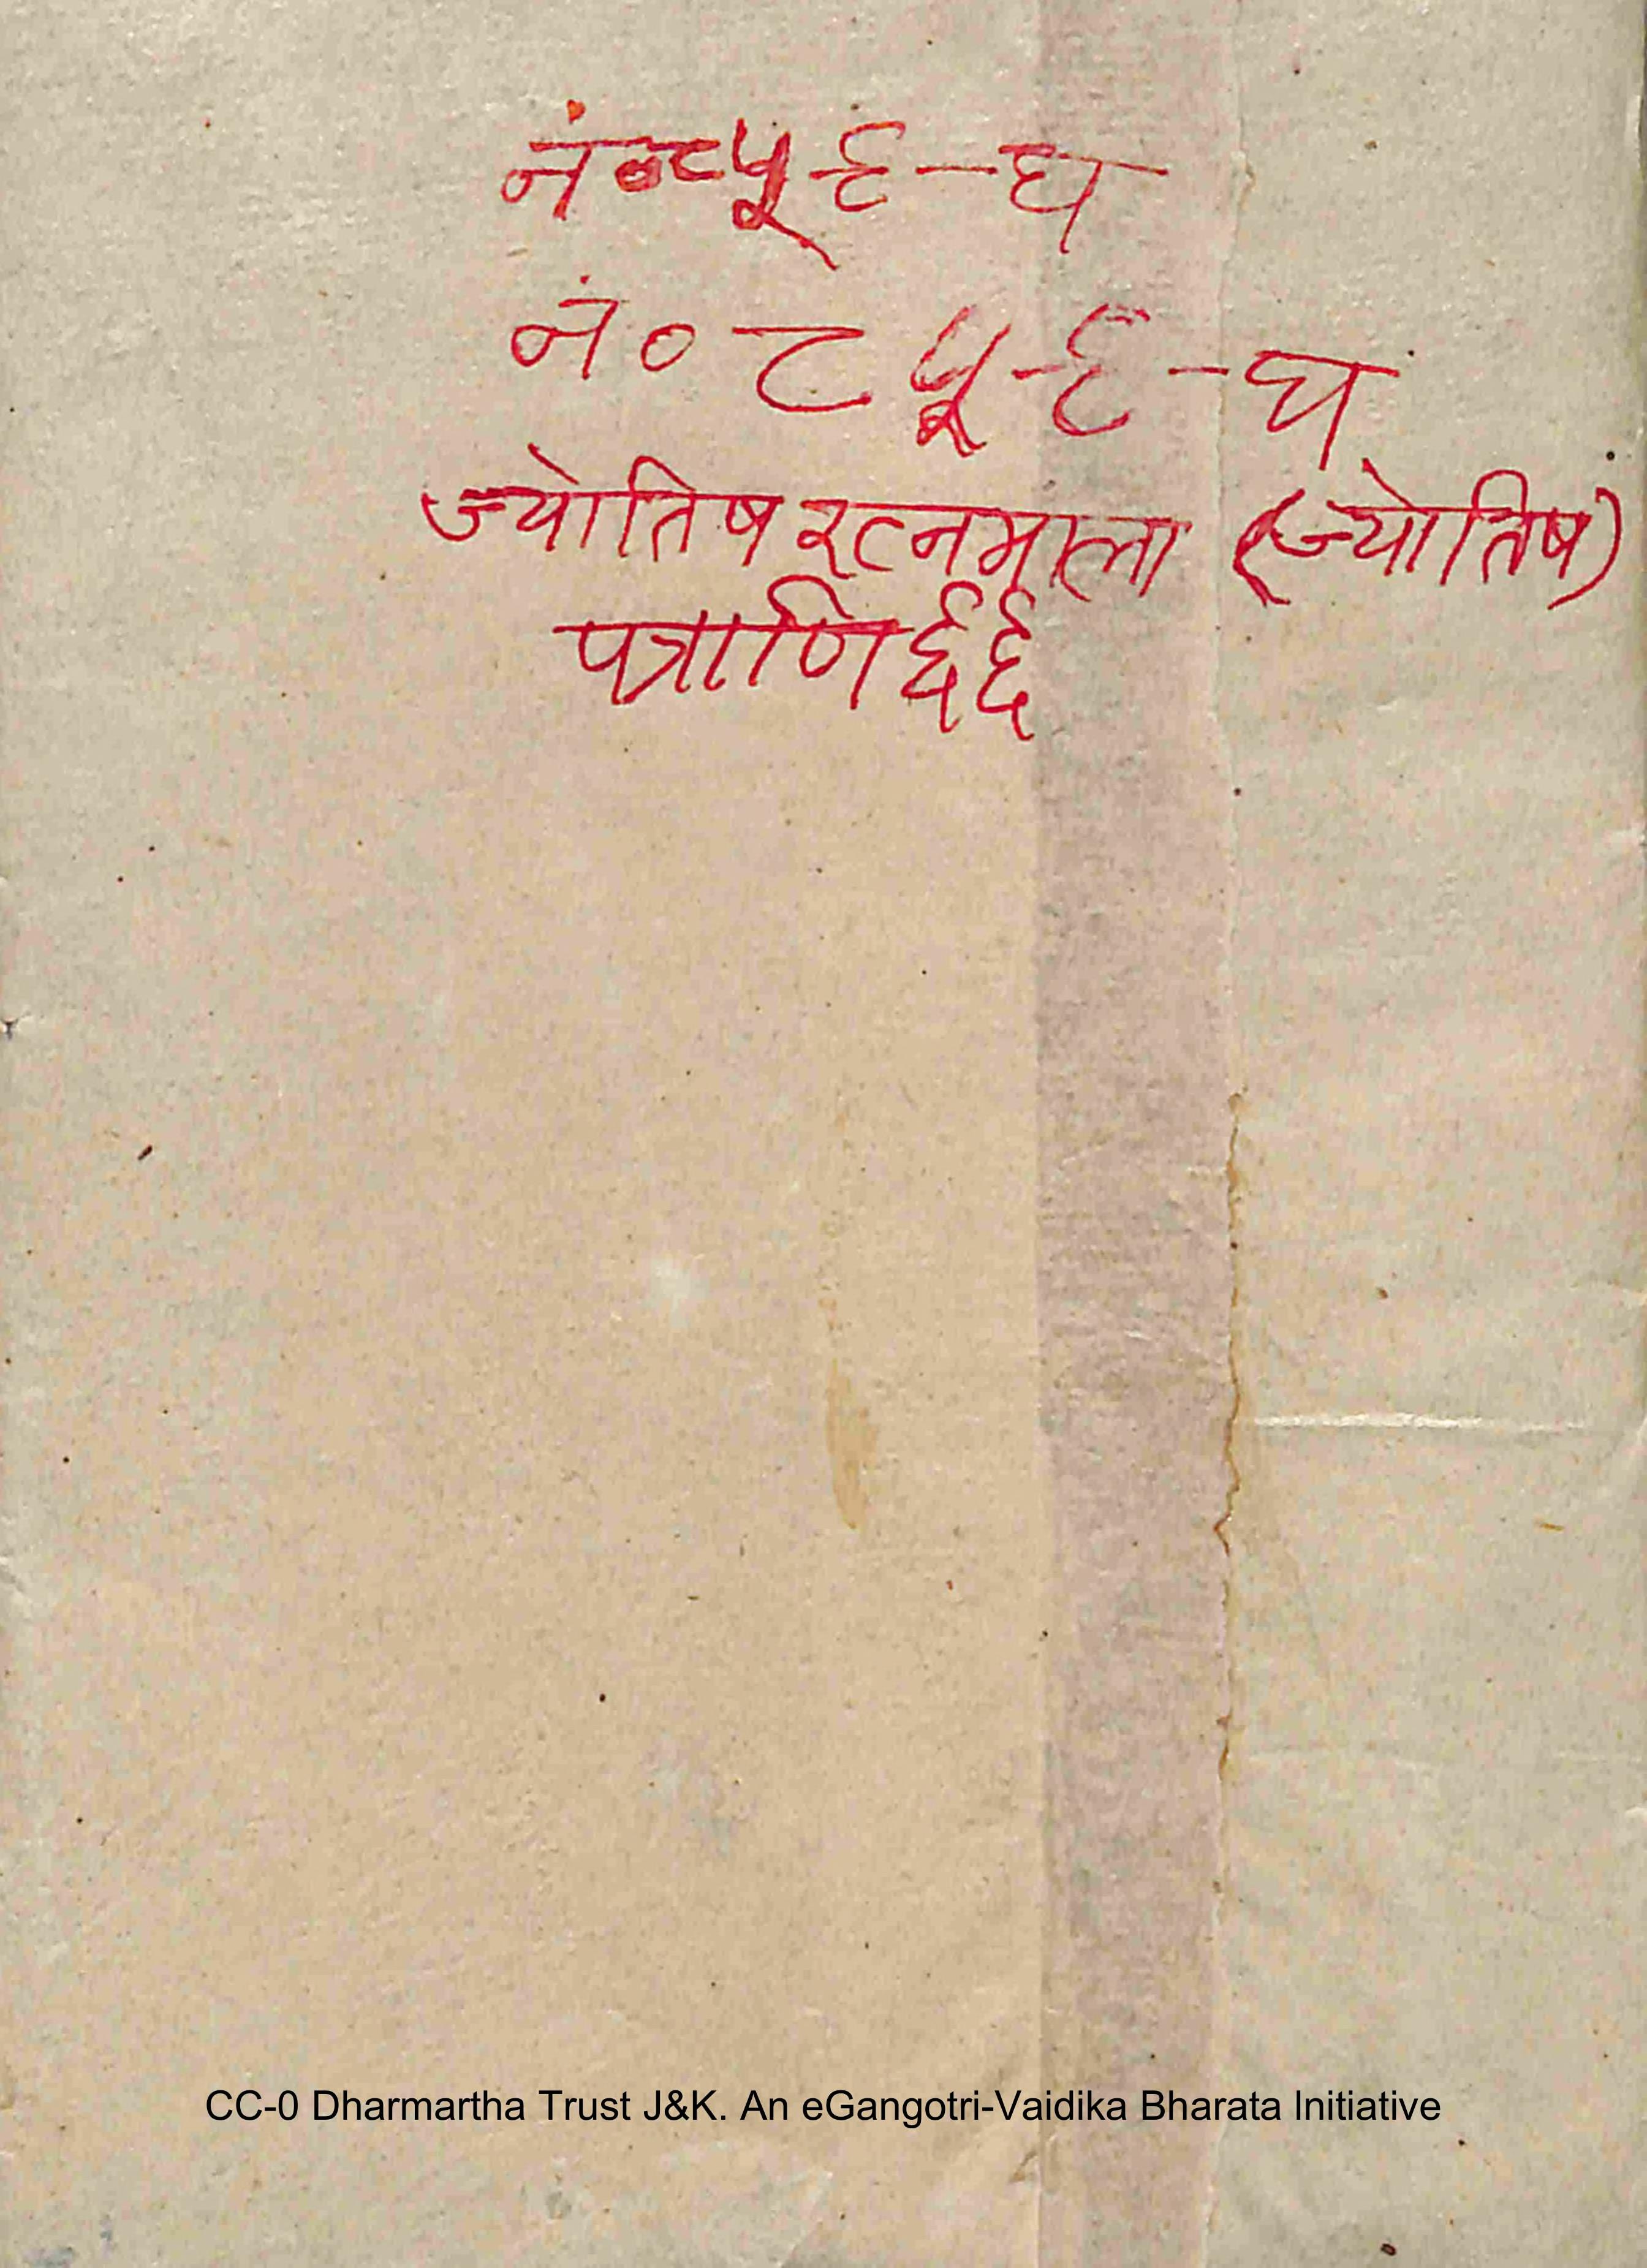 नं०८५-६-घ
नं० ८५-६-घ
ज्योतिष रत्नमाला (ज्योतिष)
पत्राणि ६६
CC-0 Dharmartha Trust J&K. An eGangotri-Vaidika Bharata Initiative